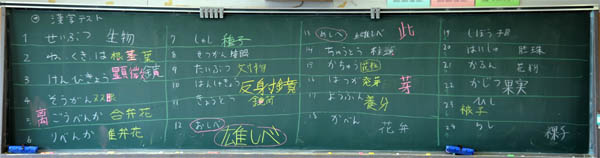 漢字テスト
1 せいぶつ 生物
2 ね、くき、は 根茎葉
3 けんびきょう 顕微鏡
4 そうがん 双眼
5 ごうべんか 合弁花
離
6 りべんか 離弁花
7 しゅし 種子
8
9
10 反射鏡
11
12 おしべ 雄しべ
13 めしべ 雌しべ
此
14 ちゅうとう 柱頭
15 かちゅう 花柱
16 はつが 発芽 芽
17 ようぶん 養分
18 かべん 花弁
19 しぼう 子房
20 はいしゅ 胚珠
21 かふん 花粉
22 かじつ 果実
23 ひし
24 らし 裸子